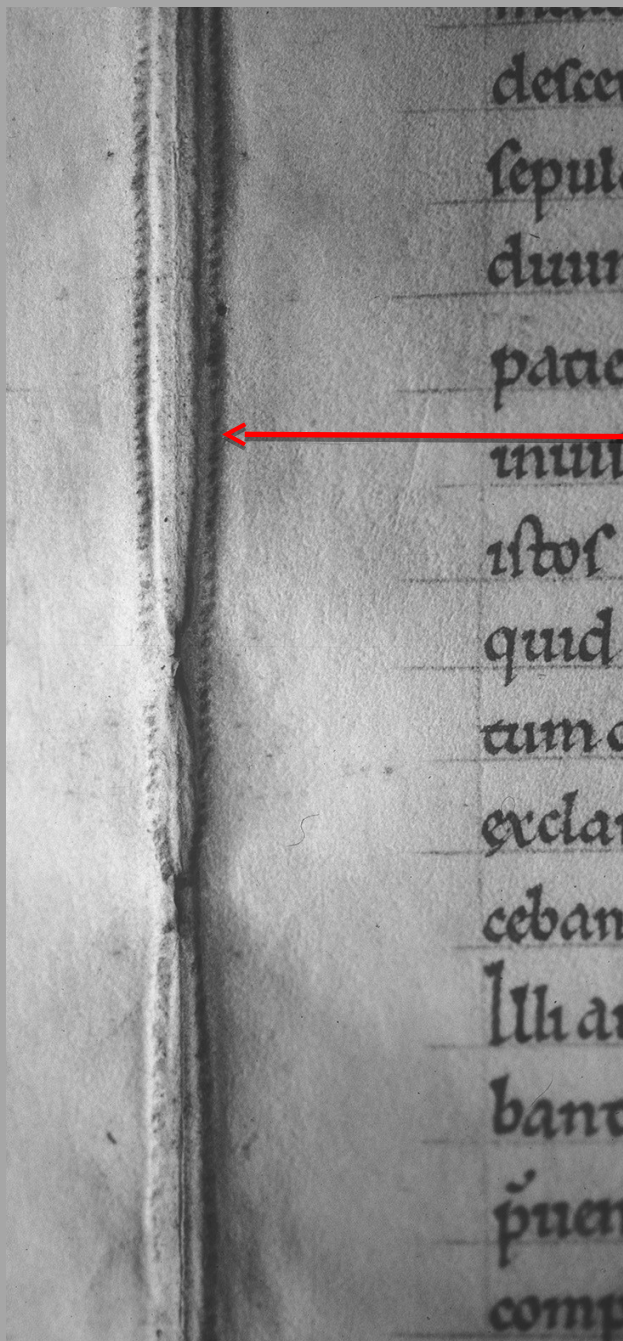 deſce
ſepul
duum
patie
inuu
iſtoſ
quid
tum
excla
ceban
Illi a
bant
p̄uen
comp